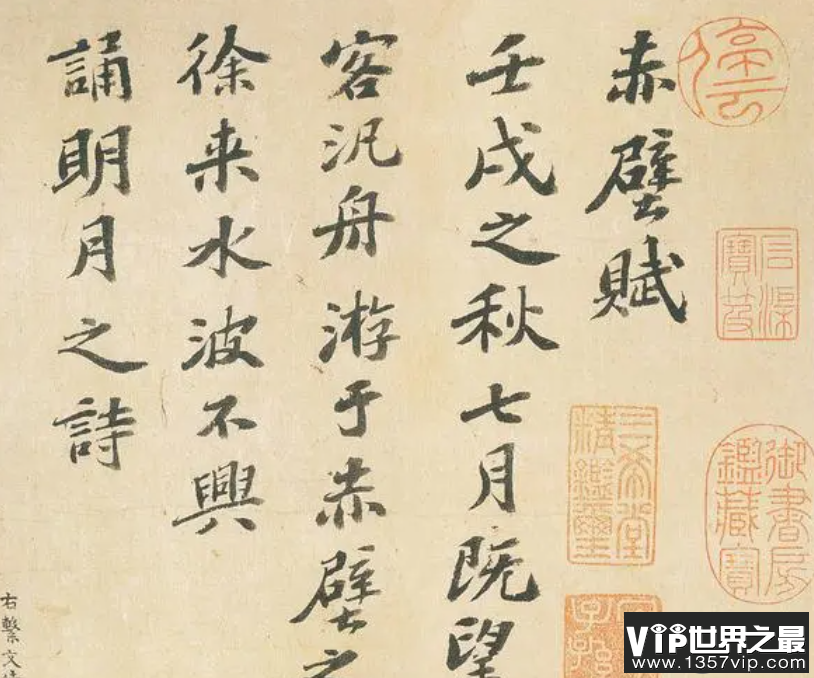 停云
石渠寶笈
御書房鑑藏寶
三希堂精鑑璽
赤壁賦
壬戌之秋七月既望
客汎舟游于赤壁之
徐来水波不興
誦明月之詩
右繫文
VIP世界之最
www.1357vip.com